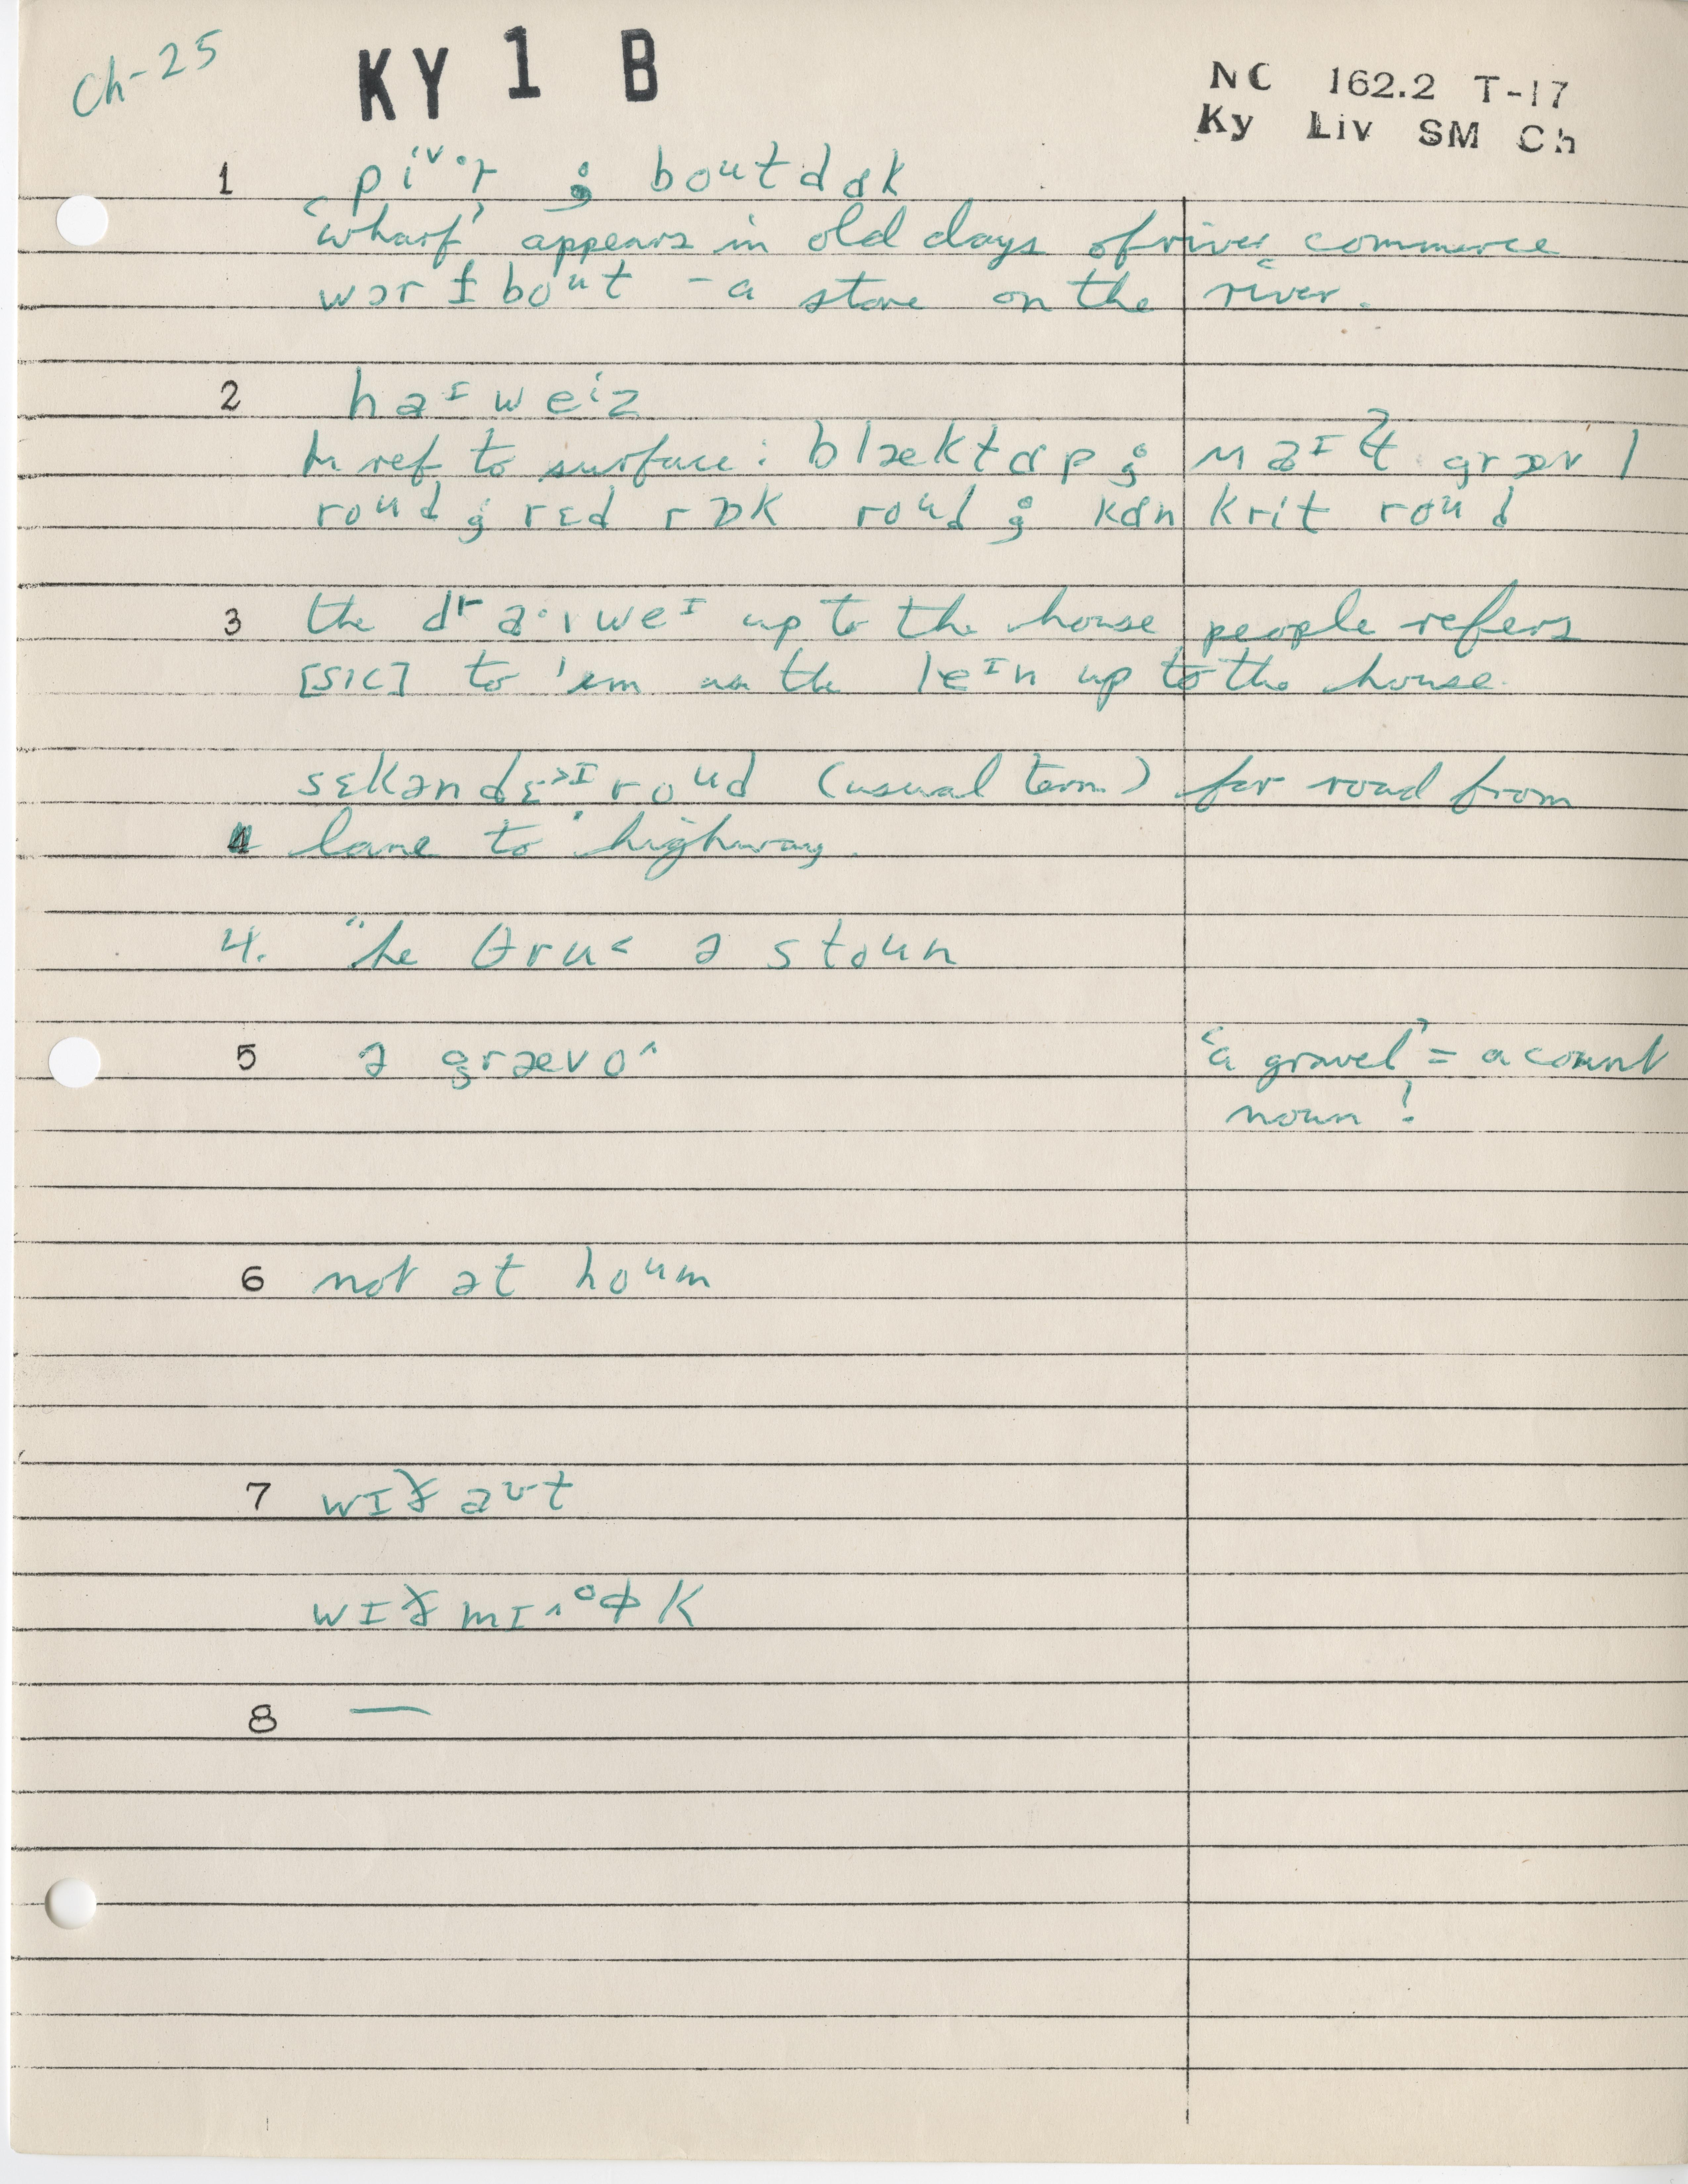 Ch-25
KY 1 B
NC 162.2 T-17
Ky Liv SM Ch
1 piᵛ·ɚ ; boutdɑk
'wharf' appears in old days of river commerce
wɔrf boᵘt - a store on the river.
2 haᶦweⁱz
In ref to surface: blæktɑp ; græv l
roᵘd ; rɛd rɒk roᵘd ; kɑnkrit roᵘd
3 the dra·ɪweᶦ up to the house people refers
[SIC] to 'em as the leᶦn up to the house.
sɛkəndɛ˃ᶦroᵘd (usual term) for road from
4 lane to highway.
4. "he θru˂ ə stoun
5 ə grævo^ 'a gravel' = a count
noun!
6 not ət hoᵘm
7 wɪðaʊt
wɪð mɪ^ k
8 —